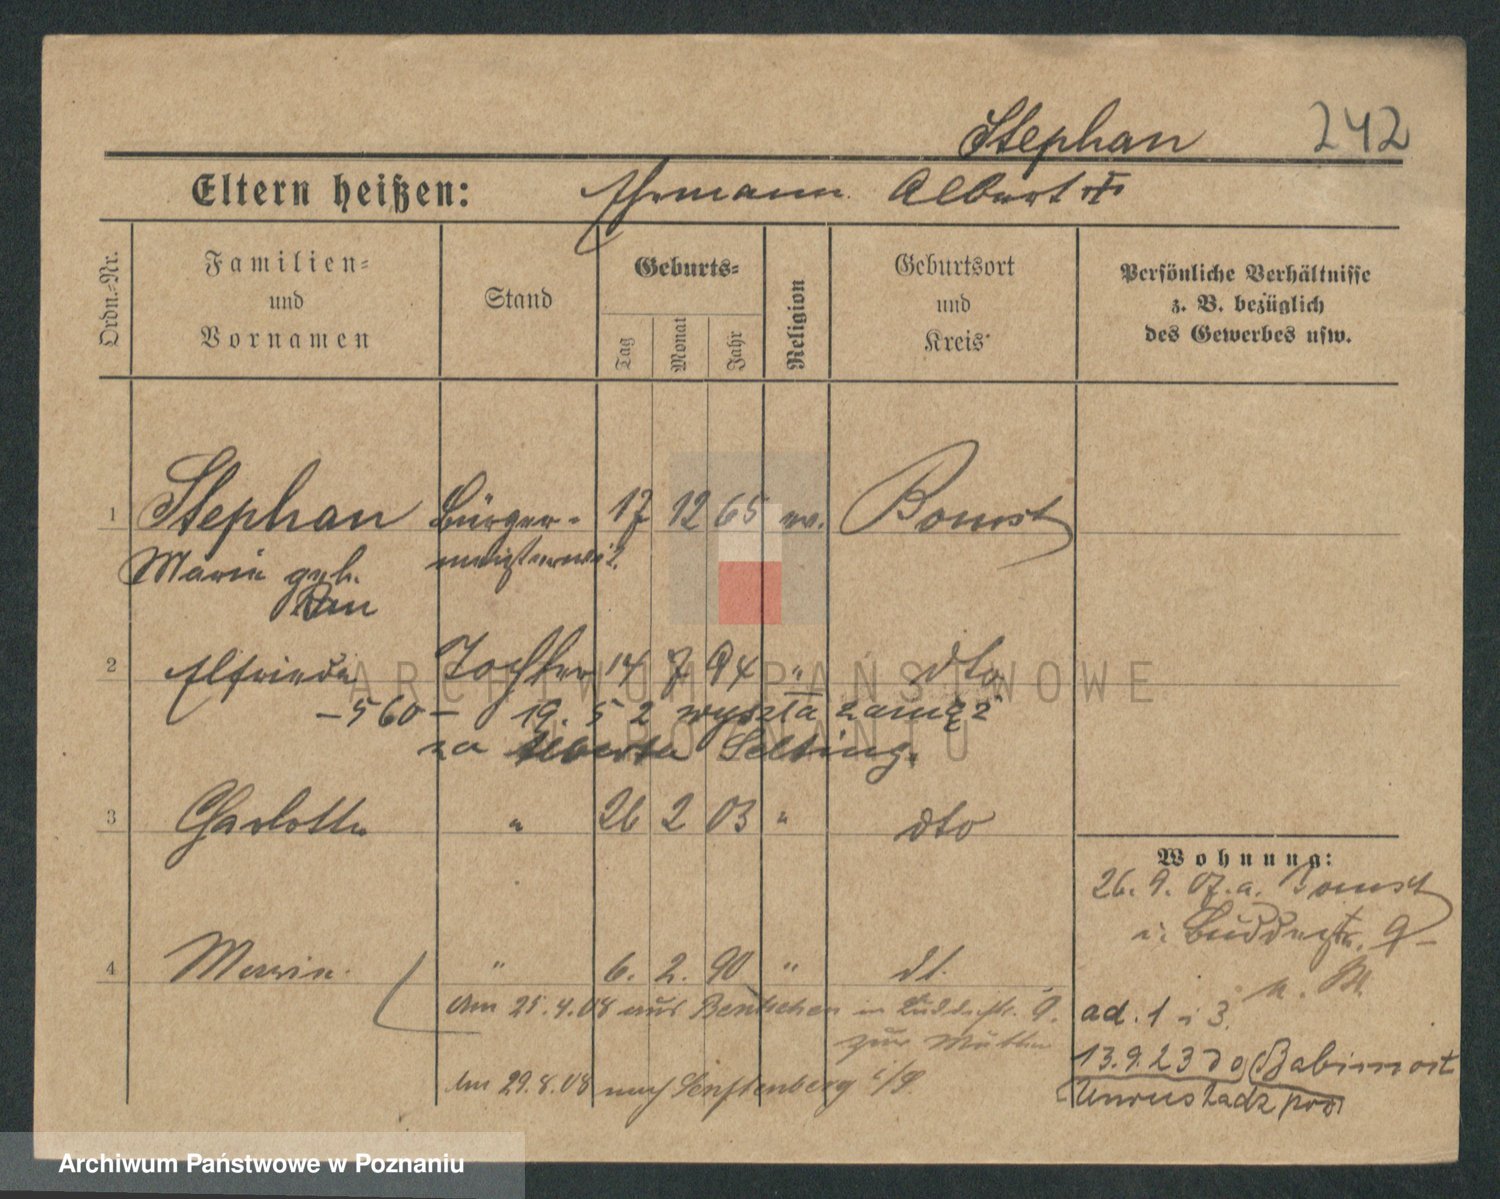 Stephan 242
Eltern heißen: Ehemann Albert
Ordn.-Nr.
Familien-
und
Vornamen
Stand
Geburts-
Tag
Monat
Jahr
Religion
Geburtsort
und
Kreis
Persönliche Verhältnisse
z. B. bezüglich
des Gewerbes usw.
1 Stephan Bürger- 17 12 65 ev. Bomst
Marie geb.
2 Elfriede Tochter 14 7 94 " dto
ARCHIWUM PAŃSTWOWE
W POZNANIU
–560– 19. 5 2 wyszła zamąż
za Alberta
3 Charlotte " 26 2 03 " dto
Wohnung:
26. 9. 07. a. Bomst
9
u. M.
4 " 6. 2. 90 " dt.
Am 25.4.08 aus Bentschen in 9.
zur Mutter
Am 29.8.08 nach Senftenberg
ad. 1 i 3.
13.9.23 do Babimost
Unrustadz
Archiwum Państwowe w Poznaniu